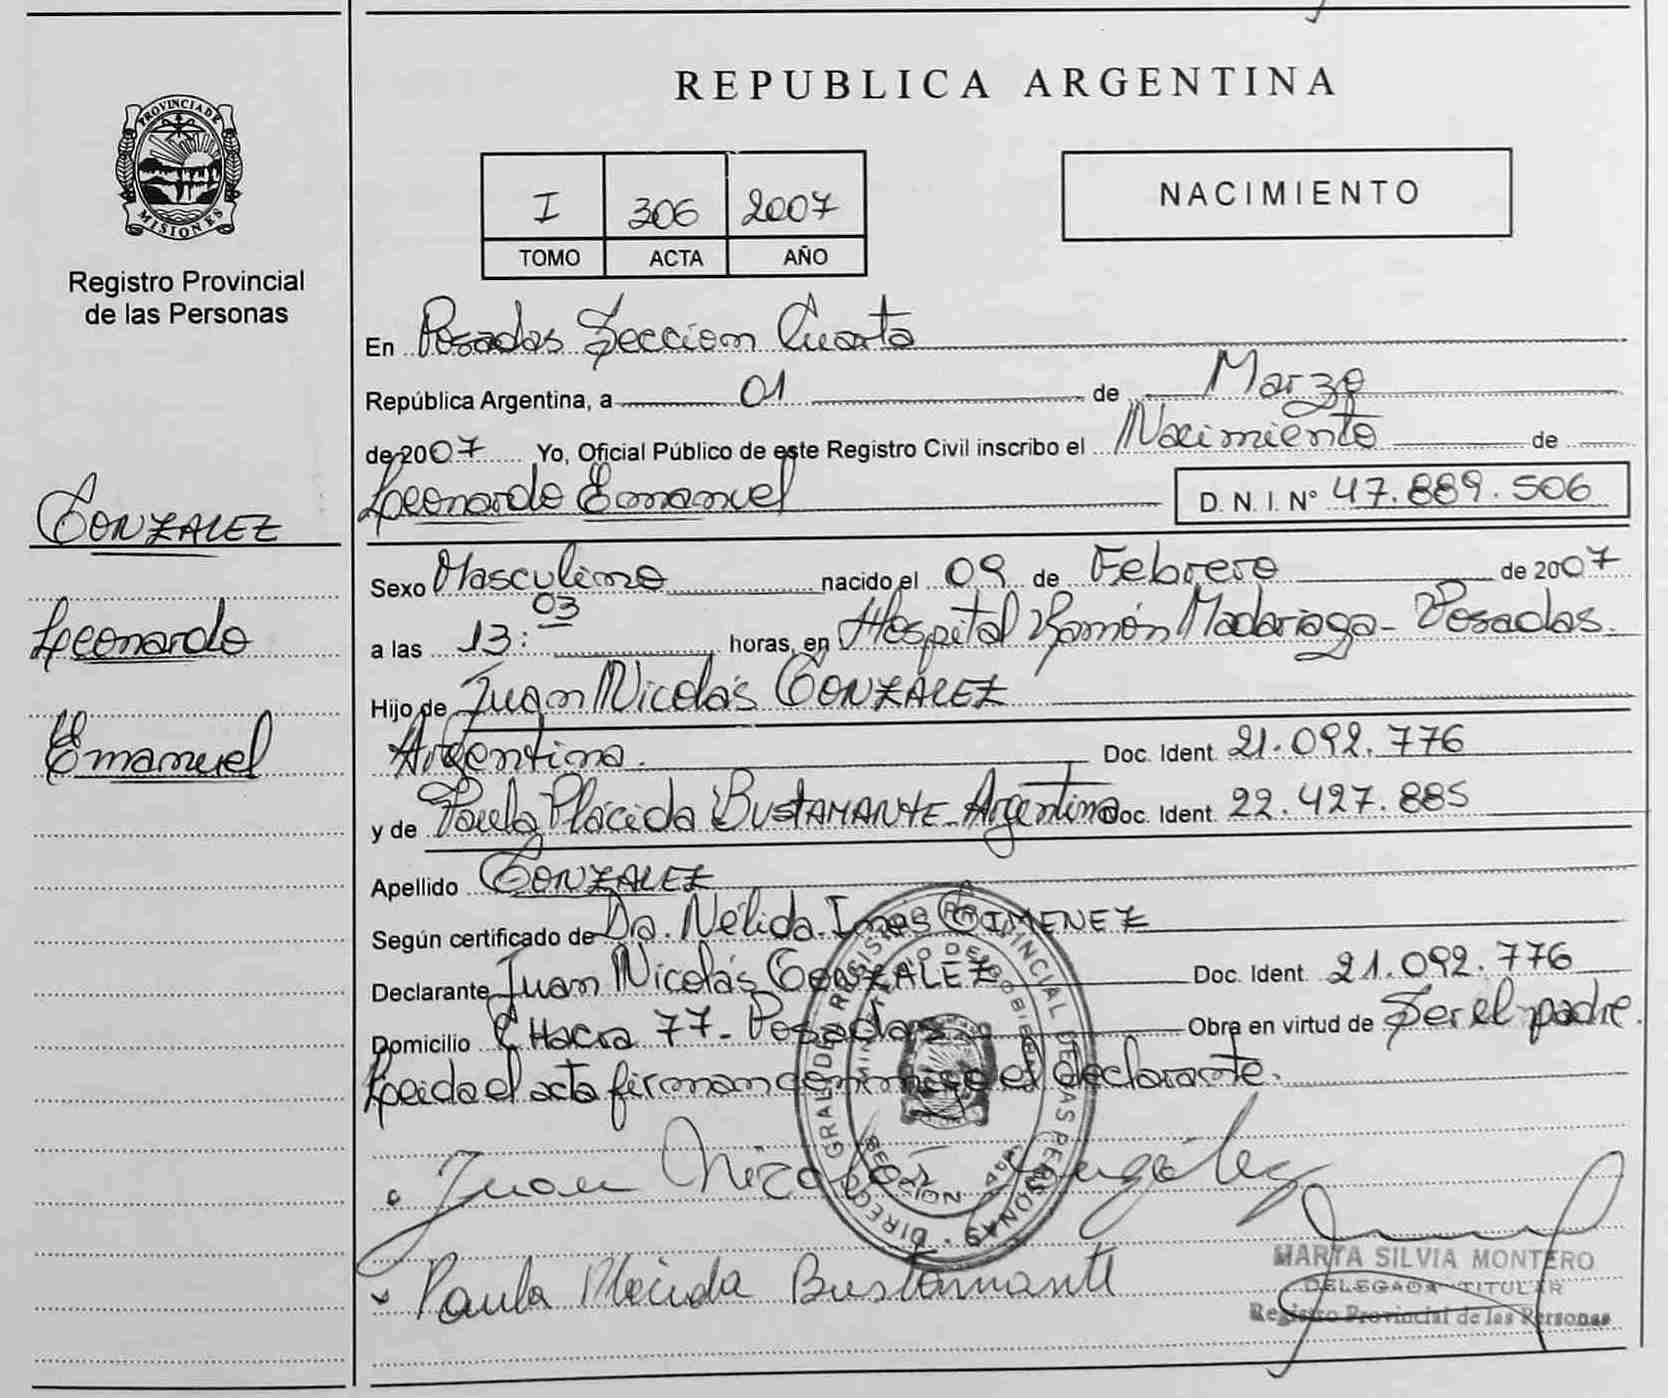 PROVINCIA DE
MISIONES
Registro Provincial
de las Personas
GONZALEZ
Leonardo
Emanuel
REPUBLICA ARGENTINA
I 306 2007
TOMO ACTA AÑO
NACIMIENTO
En Posadas Sección Cuarta
República Argentina, a 01 de Marzo
de 2007 Yo, Oficial Público de este Registro Civil inscribo el Nacimiento de
Leonardo Emanuel D. N. I. Nº 47.889.506
Sexo Masculino nacido el 09 de Febrero de 2007
a las 13:03 horas, en Hospital Ramón Madariaga - Posadas.
Hijo de Juan Nicolás GONZALEZ
Argentina. Doc. Ident. 21.092.776
y de Paula Plácida BUSTAMANTE - Argentina Doc. Ident. 22.427.885
Apellido GONZALEZ
Según certificado de Dra. Nélida Ines GIMENEZ
Declarante Juan Nicolás GONZALEZ Doc. Ident. 21.092.776
Domicilio CHacra 77 - Posadas Obra en virtud de Ser el padre.
Leida el acta firman conmigo el declarante.
Juan Nicolás González
Paula Placida Bustamante
DIREC. GRAL. DE REGISTRO PROVINCIAL DE LAS PERSONAS
MINISTERIO DE GOBIERNO
MARTA SILVIA MONTERO
DELEGADA TITULAR
Registro Provincial de las Personas